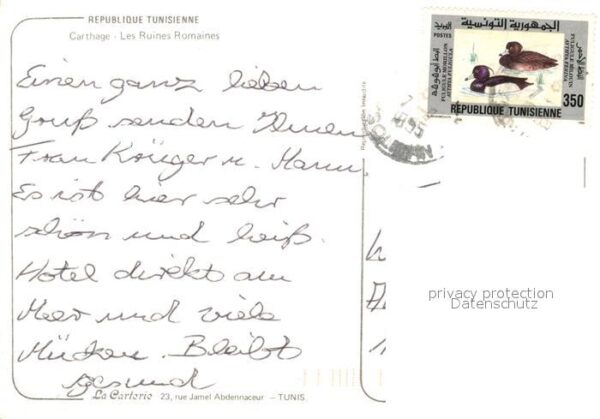 REPUBLIQUE TUNISIENNE
Carthage - Les Ruines Romaines
Einen ganz lieben
Gruß senden Ihnen
Frau Krüger u. Mann.
Es ist hier sehr
schön und heiß.
Hotel direkt am
Meer und viele
Mücken. Bleibt
gesund
La Carterie 23, rue Jamel Abdennaceur - TUNIS.
الجمهورية التونسية
POSTES
FULIGULE MORILLON
AYTHYA FULIGULA
FULIGULE MILOUIN
AYTHYA FERINA
350
REPUBLIQUE TUNISIENNE
privacy protection
Datenschutz